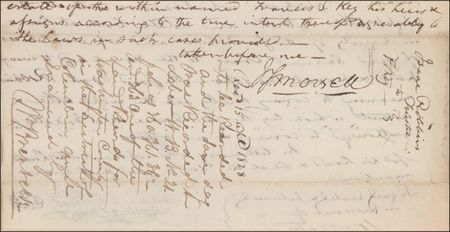 estate upon the within named Francis S. Key his heirs &
assigns according to the true intent thereof agreeably to
the Laws in such cases provided
taken before me
Morsell
Isaac Robbins
to
Key
3
1828
to be Recorded
and the same day
was Recorded in
Liber W.B. No. 21
folios
one of the
Land Records for
Washington County
in the District of
Columbia and
examined by
Brent